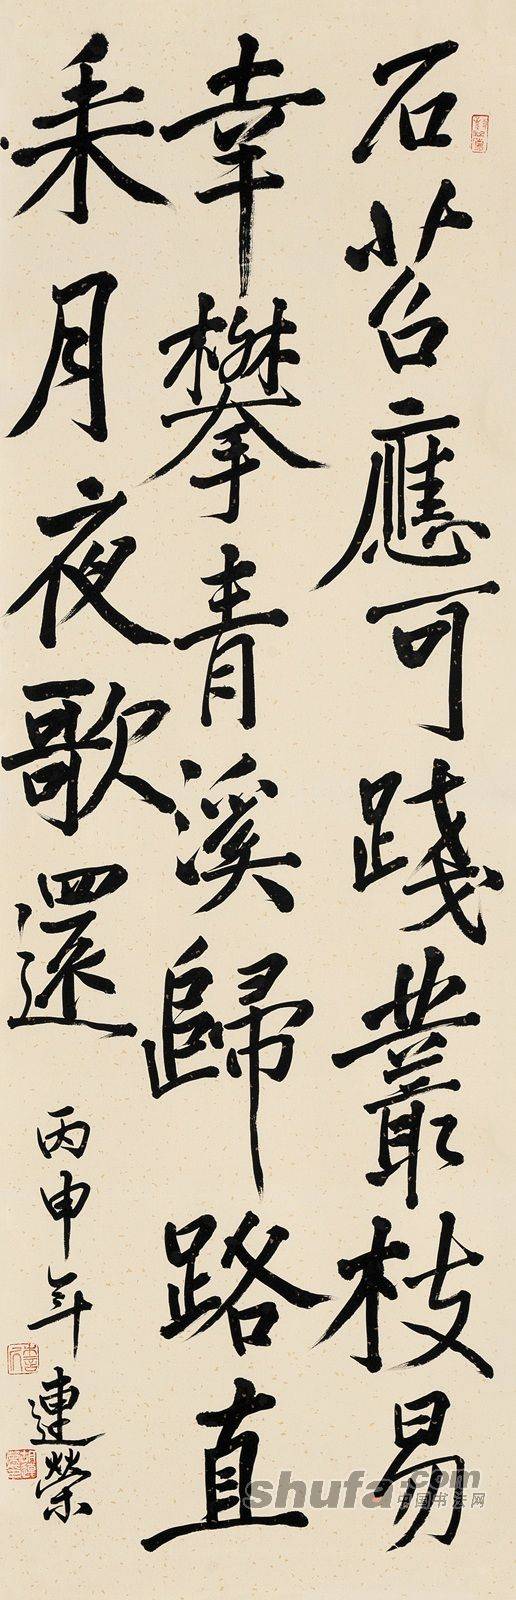 石苔應可踐叢枝易
幸攀青溪歸路直
乘月夜歌還
丙申年連榮
shufa.com
中国书法网